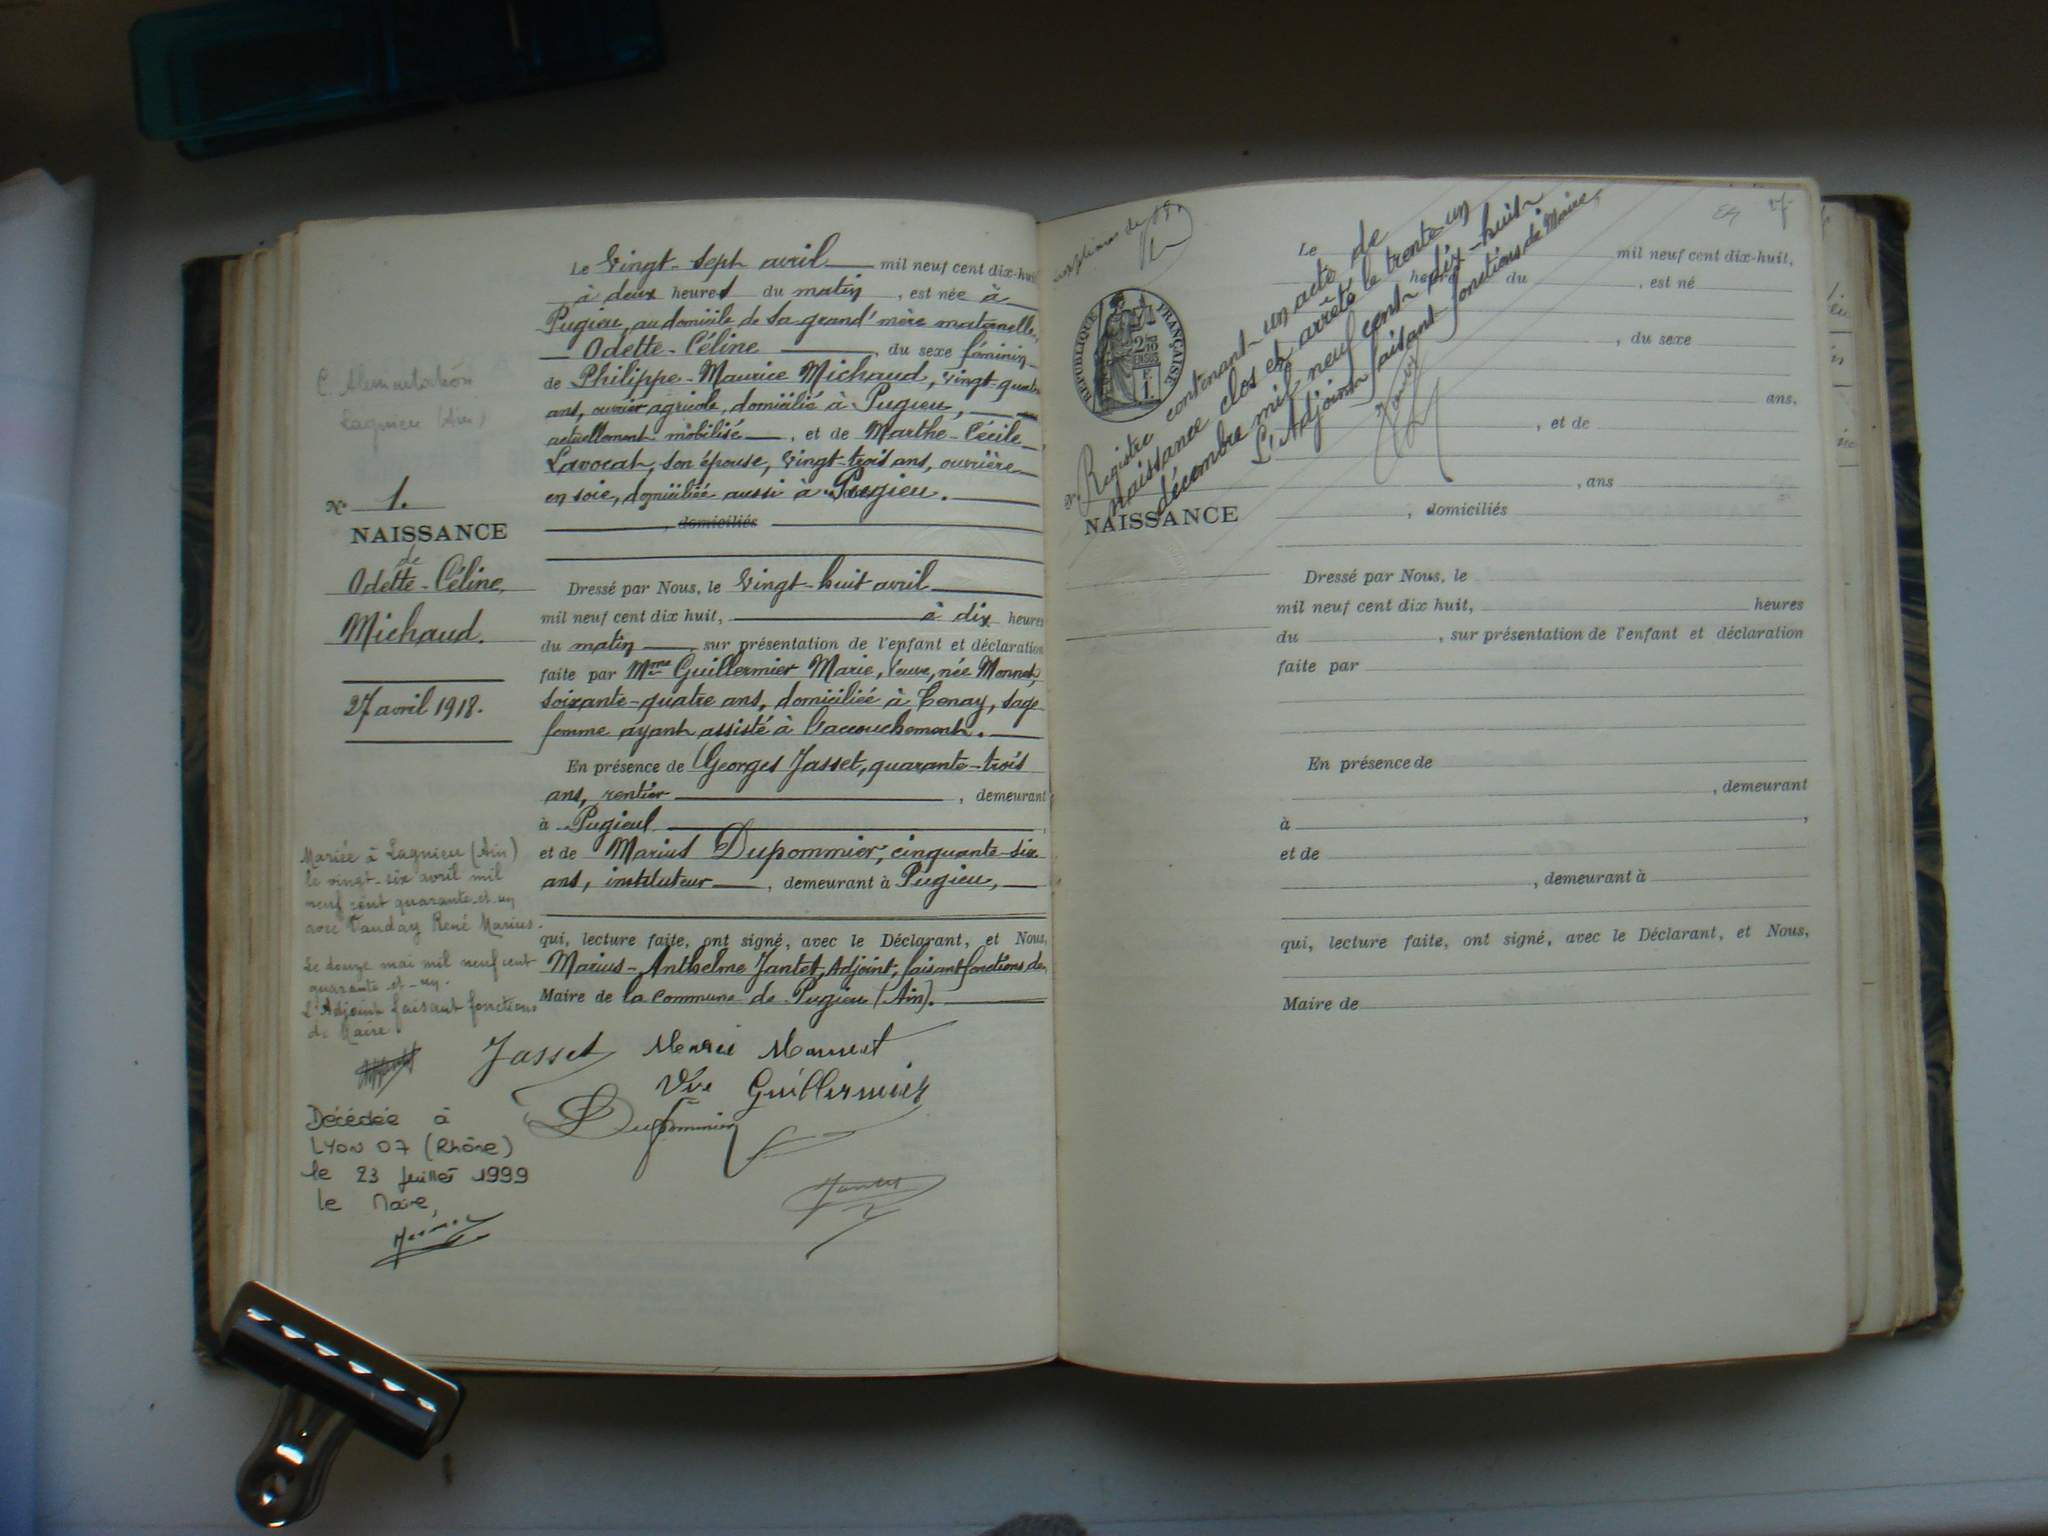 C. Alimentation
Lagnieu (Ain)
N° 1.
NAISSANCE
de
Odette-Céline
Michaud.
27 avril 1918.
Mariée à Lagnieu (Ain)
le vingt-six avril mil
neuf cent quarante-et-un
avec Vauday René Marius.
Le douze mai mil neuf cent
quarante-et-un.
L'Adjoint faisant fonctions
de Maire
Décédée à
LYON 07 (Rhône)
le 23 juillet 1999
le Maire,
Le Vingt-sept avril mil neuf cent dix-huit
à deux heures du matin, est née à
Pugieu, au domicile de sa grand'mère maternelle,
Odette-Céline, du sexe féminin
de Philippe-Maurice Michaud, vingt-quatre
ans, ouvrier agricole, domicilié à Pugieu,
actuellement mobilisé, et de Marthe-Cécile
Lavocat, son épouse, vingt-trois ans, ouvrière
en soie, domiciliée aussi à Pugieu.
, domiciliés
Dressé par Nous, le vingt-huit avril
mil neuf cent dix huit, à dix heures
du matin, sur présentation de l'enfant et déclaration
faite par Mme Guillermier Marie, Veuve, née Monnet,
soixante-quatre ans, domiciliée à Tenay, sage
femme ayant assisté à l'accouchement.
En présence de Georges Jasset, quarante-trois
ans, rentier, demeurant
à Pugieu
et de Marius Dupommier, cinquante-six
ans, instituteur, demeurant à Pugieu,
qui, lecture faite, ont signé, avec le Déclarant, et Nous,
Marius-Anthelme Jantet, Adjoint, faisant fonctions de
Maire de la commune de Pugieu (Ain).
Jasset Marie Monnet
Vve Guillermier
Dupommier
Jantet
RÉPUBLIQUE FRANÇAISE
2
Registre contenant un acte de
naissance clos et arrêté le trente-un
décembre mil neuf cent dix-huit
L'Adjoint faisant fonctions de Maire,
Jantet
NAISSANCE
Le mil neuf cent dix-huit,
heure du , est né
, du sexe
ans,
, et de
, ans
, domiciliés
Dressé par Nous, le
mil neuf cent dix huit, heures
du , sur présentation de l'enfant et déclaration
faite par
En présence de
, demeurant
à ,
et de
, demeurant à
qui, lecture faite, ont signé, avec le Déclarant, et Nous,
Maire de